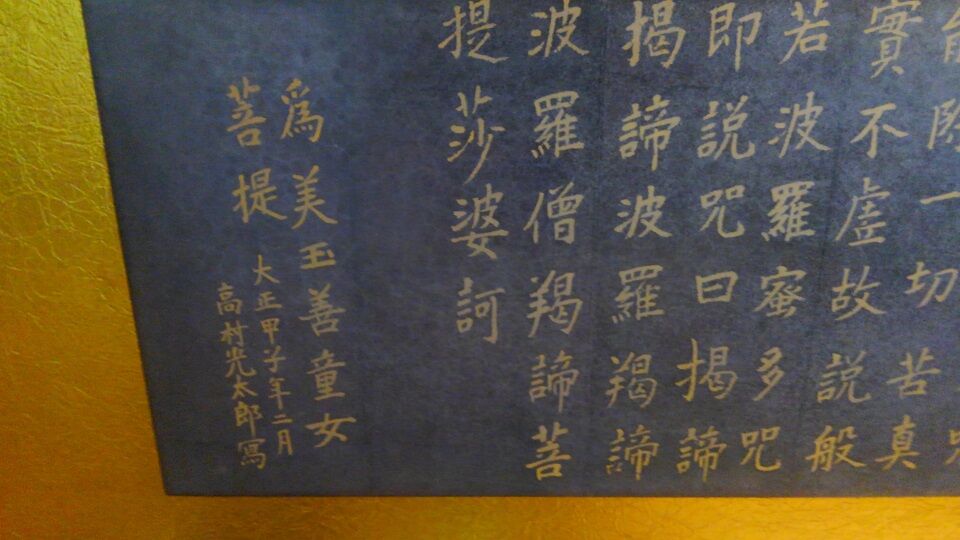 能除一切苦真
實不虛故說般
若波羅蜜多咒
即說咒曰揭諦
揭諦波羅羯諦
波羅僧羯諦菩
提莎婆訶
爲美玉善童女
菩提
大正甲子年二月
高村光太郎寫